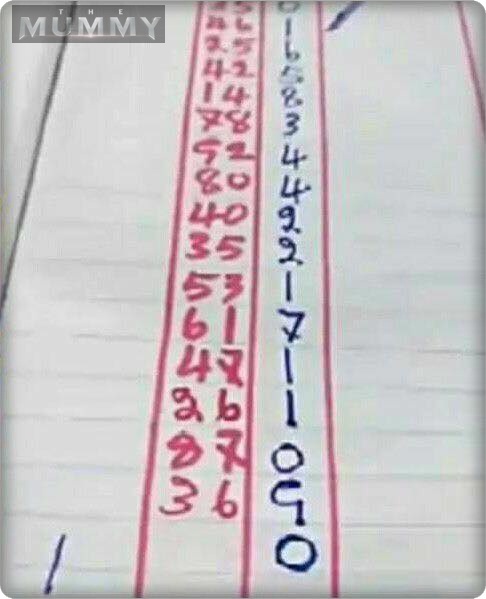 THE
MUMMY
0
46 1
25 6
42 5
14 8
78 3
92 4
80 4
40 2
35 2
53 1
61 7
47 1
26 1
87 0
36 9
0